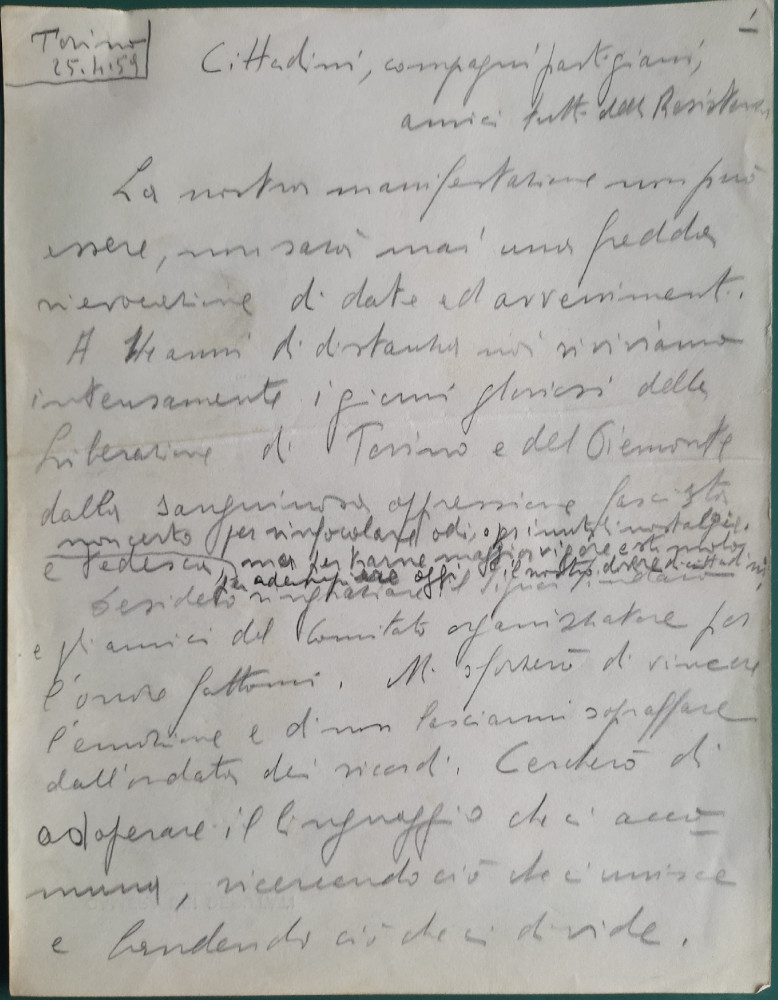 1
Torino
25.4.59
Cittadini, compagni partigiani,
amici tutti della Resistenza
La nostra manifestazione non può
essere, non sarà mai una fredda
rievocazione di date ed avvenimenti.
A 14 anni di distanza noi riviviamo
intensamente i giorni gloriosi della
Liberazione di Torino e del Piemonte
dalla sanguinosa oppressione fascista
non certo per rinfocolare odi, o per inutili nostalgie,
e tedesca, ma per trarne maggior vigore e stimolo
per adempiere oggi il nostro dovere di cittadini.
Desidero ringraziare il signor Sindaco
e gli amici del Comitato organizzatore per
l'onore fattomi. Mi sforzerò di vincere
l'emozione e di non lasciarmi sopraffare
dall'ondata dei ricordi. Cercherò di
adoperare il linguaggio che ci acco-
muna, ricercando ciò che ci unisce
e bandendo ciò che ci divide.